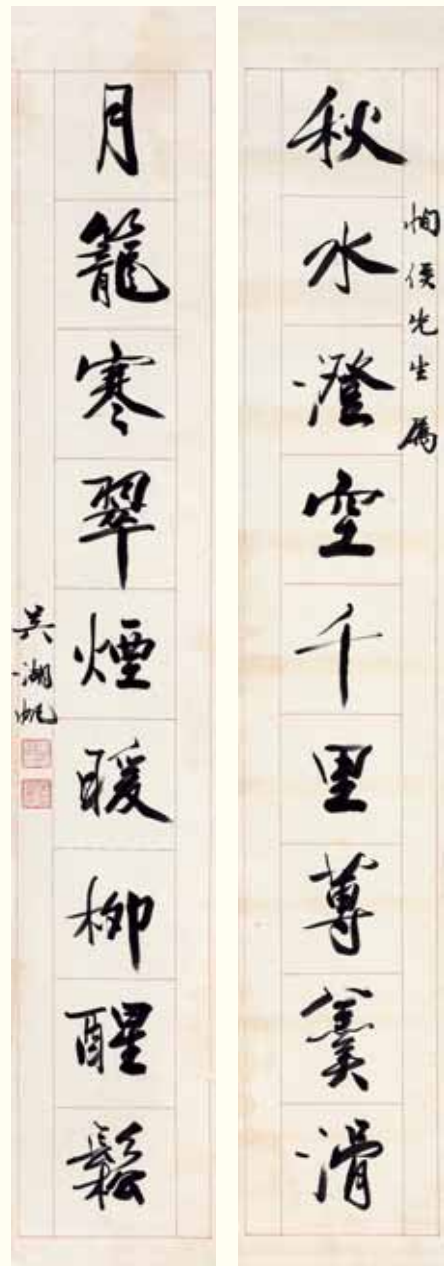 秋水澄空千里蓴羹滑
恂侯先生屬
月籠寒翠煙暖柳醒鬆
吳湖帆